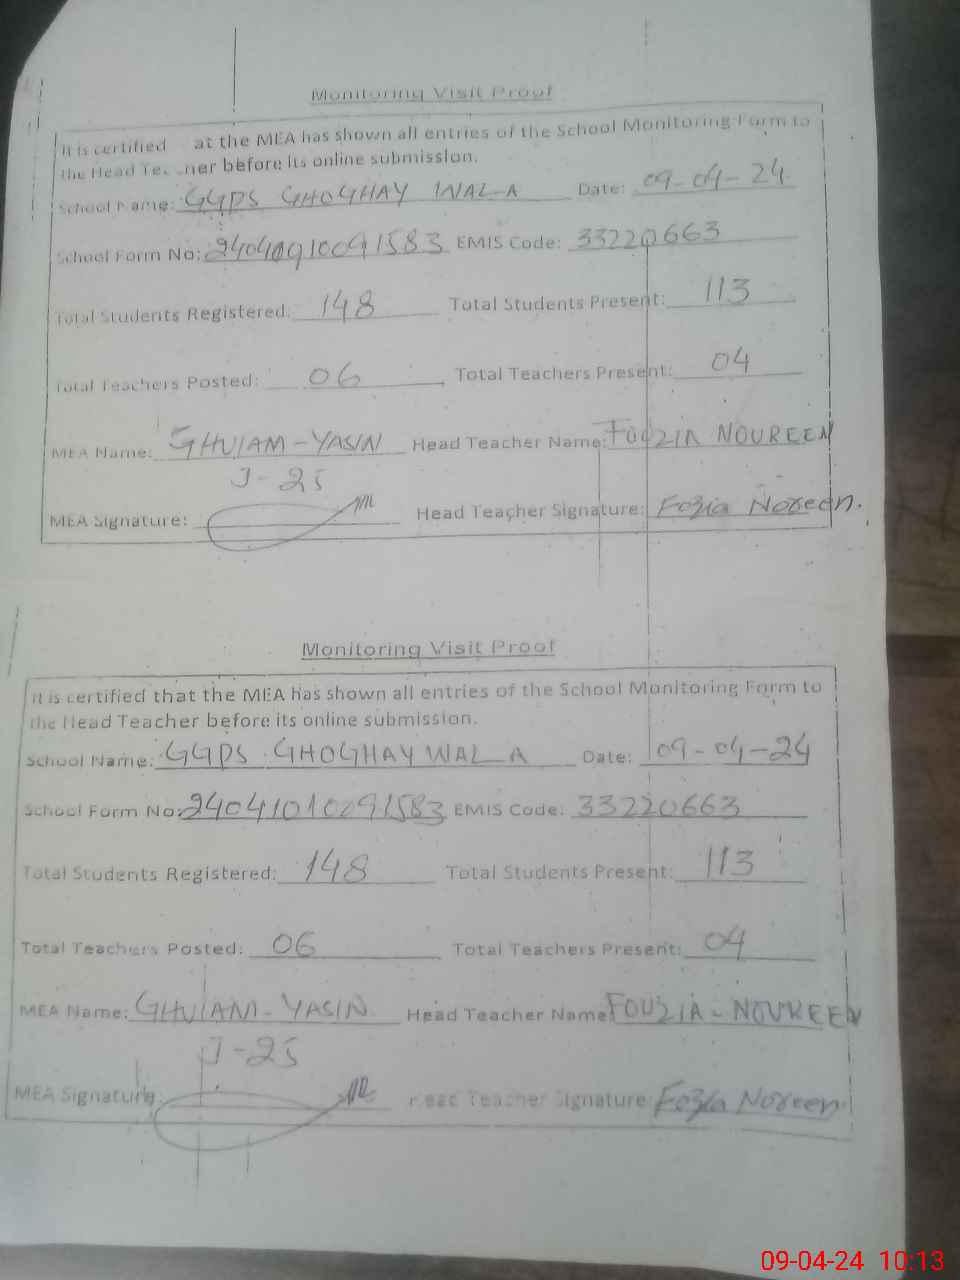 Monitoring Visit Proof
It is certified at the MEA has shown all entries of the School Monitoring Form to
the Head Teacher before its online submission.
School Name: GGPS GHOGHAY WALA Date: 09-04-24
School Form No: 24040910091583 EMIS Code: 33220663
Total Students Registered: 148 Total Students Present: 113
Total Teachers Posted: 06 Total Teachers Present: 04
MEA Name: GHULAM-YASIN Head Teacher Name: FOUZIA NOUREEN
J-25
MEA Signature: Head Teacher Signature: Fozia Noreen.
Monitoring Visit Proof
It is certified that the MEA has shown all entries of the School Monitoring Form to
the Head Teacher before its online submission.
School Name: GGPS GHOGHAY WALA Date: 09-04-24
School Form No: 24041010091583 EMIS Code: 33220663
Total Students Registered: 148 Total Students Present: 113
Total Teachers Posted: 06 Total Teachers Present: 04
MEA Name: GHULAM-YASIN Head Teacher Name: FOUZIA-NOUREEN
J-25
MEA Signature: Head Teacher Signature: Fozia Noreen.
09-04-24 10:13